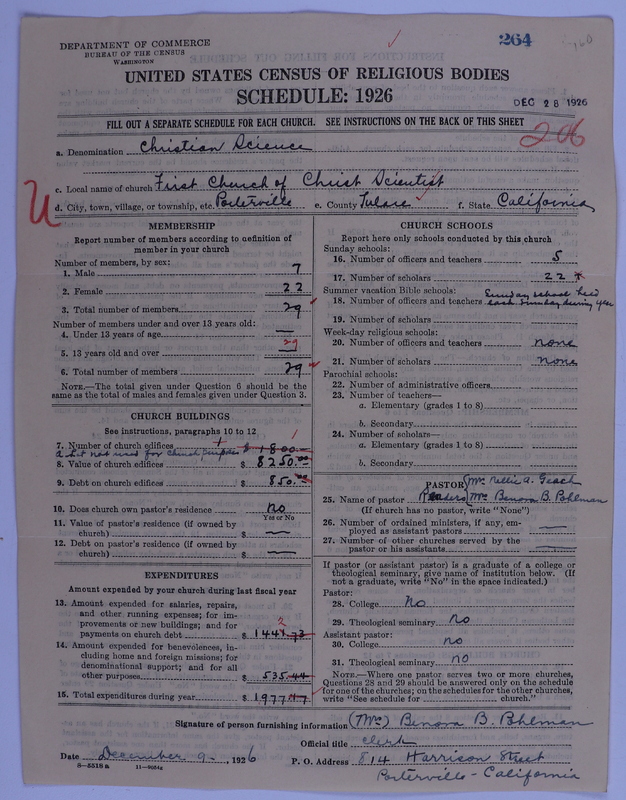 DEPARTMENT OF COMMERCE
BUREAU OF THE CENSUS
WASHINGTON
264
160
UNITED STATES CENSUS OF RELIGIOUS BODIES
SCHEDULE: 1926
DEC 28 1926
FILL OUT A SEPARATE SCHEDULE FOR EACH CHURCH. SEE INSTRUCTIONS ON THE BACK OF THIS SHEET
206
a. Denomination Christian Science
c. Local name of church First Church of Christ Scientist
d. City, town, village, or township, etc. Porterville e. County Tulare f. State California
U
MEMBERSHIP
Report number of members according to definition of
member in your church
Number of members, by sex:
1. Male 7
2. Female 22
3. Total number of members 29
Number of members under and over 13 years old:
4. Under 13 years of age —
5. 13 years old and over 29
6. Total number of members 29
NOTE.—The total given under Question 6 should be
same as the total of males and females given under Question 3.
CHURCH BUILDINGS
See instructions, paragraphs 10 to 12
7. Number of church edifices 1
a Lot not used for church purposes $ 1800.00
8. Value of church edifices $ 8250.00
9. Debt on church edifices $ 850.00
10. Does church own pastor's residence no
Yes or No
11. Value of pastor's residence (if owned by
church) $ —
12. Debt on pastor's residence (if owned by
church) $ —
EXPENDITURES
Amount expended by your church during last fiscal year
13. Amount expended for salaries, repairs,
and other running expenses; for im-
provements or new buildings; and for
payments on church debt $ 1441.73
2
14. Amount expended for benevolences, in-
cluding home and foreign missions; for
denominational support; and for all
other purposes $ 535.44
15. Total expenditures during year $ 1977.17
CHURCH SCHOOLS
Report here only schools conducted by this church
Sunday schools:
16. Number of officers and teachers 5
17. Number of scholars 22
Summer vacation Bible schools: Sunday school held
18. Number of officers and teachers each Sunday during year
19. Number of scholars
Week-day religious schools:
20. Number of officers and teachers none
21. Number of scholars none
Parochial schools:
22. Number of administrative officers
23. Number of teachers—
a. Elementary (grades 1 to 8)
b. Secondary
24. Number of scholars—
a. Elementary (grades 1 to 8)
b. Secondary
PASTOR Mrs. Nellie A. Geach
25. Name of pastor Readers Mrs. Benora B. Bohlman
(If church has no pastor, write "None")
26. Number of ordained ministers, if any, em-
ployed as assistant pastors —
27. Number of other churches served by the
pastor or his assistants —
If pastor (or assistant pastor) is a graduate of a college or
theological seminary, give name of institution below. (If
not a graduate, write "No" in the space indicated.)
Pastor:
28. College no
29. Theological seminary no
Assistant pastor:
30. College no
31. Theological seminary no
NOTE.—Where one pastor serves two or more churches,
Questions 28 and 29 should be answered only on the schedule
for one of the churches; on the schedules for the other churches,
write "See schedule for church."
Signature of person furnishing information (Mrs) Benora B. Bohlman
Official title clerk
Date December 9, 1926 P. O. Address 814 Harrison Street
S—5518a 11—9054a
Porterville - California